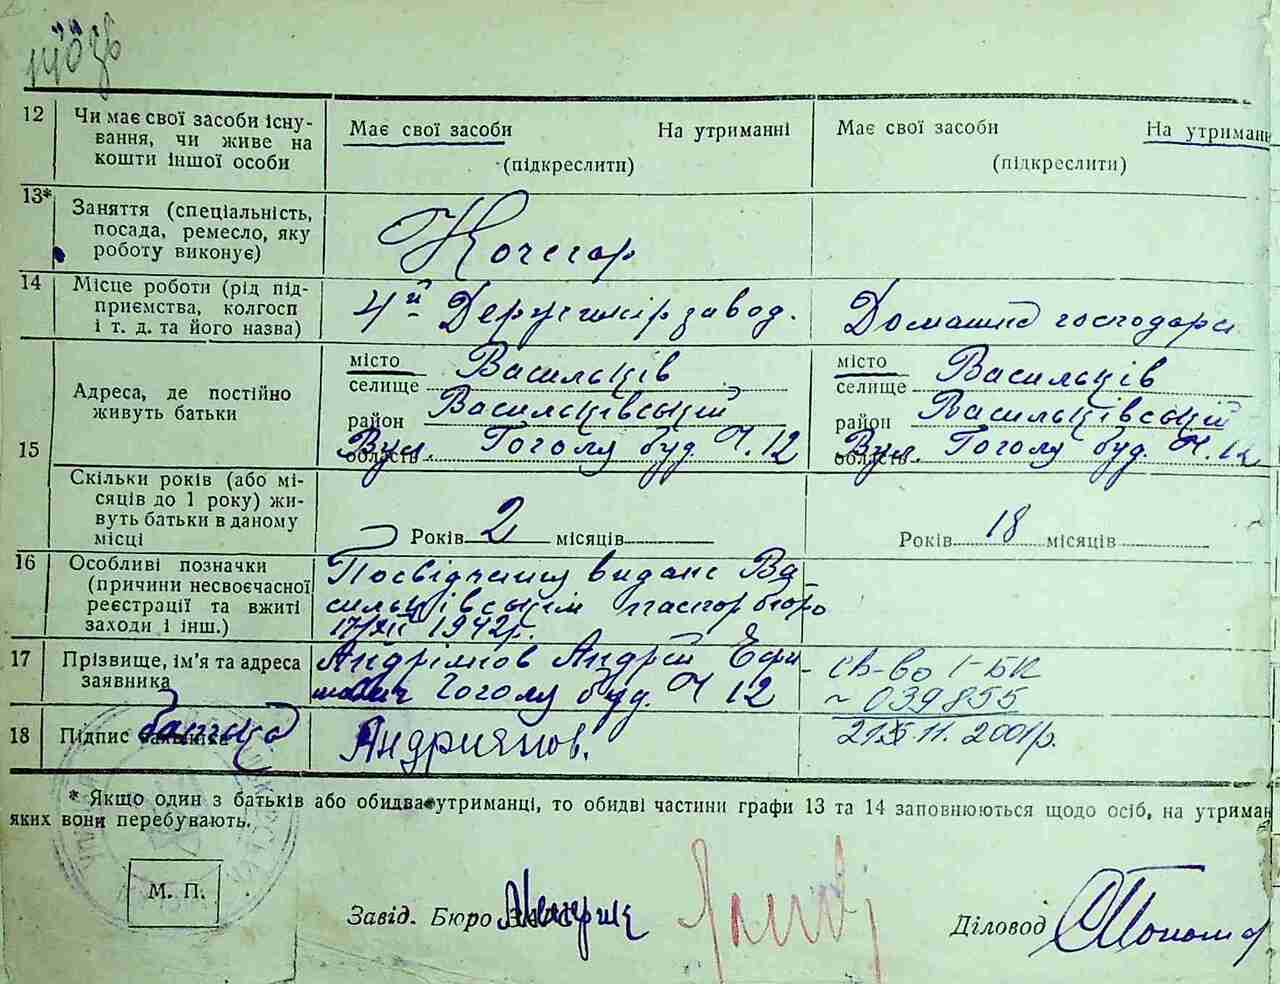 12 Чи має свої засоби існу-
вання, чи живе на
кошти іншої особи
Має свої засоби На утриманні
(підкреслити)
Має свої засоби На утриманн
(підкреслити)
13* Заняття (спеціальність,
посада, ремесло, яку
роботу виконує)
Кочегар
14 Місце роботи (рід під-
приємства, колгосп
і т. д. та його назва)
4й завод.
Домашнє господарс
15 Адреса, де постійно
живуть батьки
місто Васильків
селище
район Васильківський
область Вул. Гоголя буд. Ч. 12
місто Васильків
селище
район Васильківський
область Вул. Гоголя буд. Ч. 12
Скільки років (або мі-
сяців до 1 року) жи-
вуть батьки в даному
місці
Років 2 місяців
Років 18 місяців
16 Особливі позначки
(причини несвоєчасної
реєстрації та вжиті
заходи і інш.)
Посвідчення видане Ва-
сильківським паспортбюро
17/XII 1942р.
17 Прізвище, ім'я та адреса
заявника
Андріянов Андрій Ефи-
мович Гоголя буд. Ч 12
св-во І-БК
~ 039855
18 Підпис батька
Андриянов.
11. 2001р.
* Якщо один з батьків або обидва утриманці, то обидві частини графи 13 та 14 заповнюються щодо осіб, на утриман
яких вони перебувають.
М. П.
Завід. Бюро
Діловод